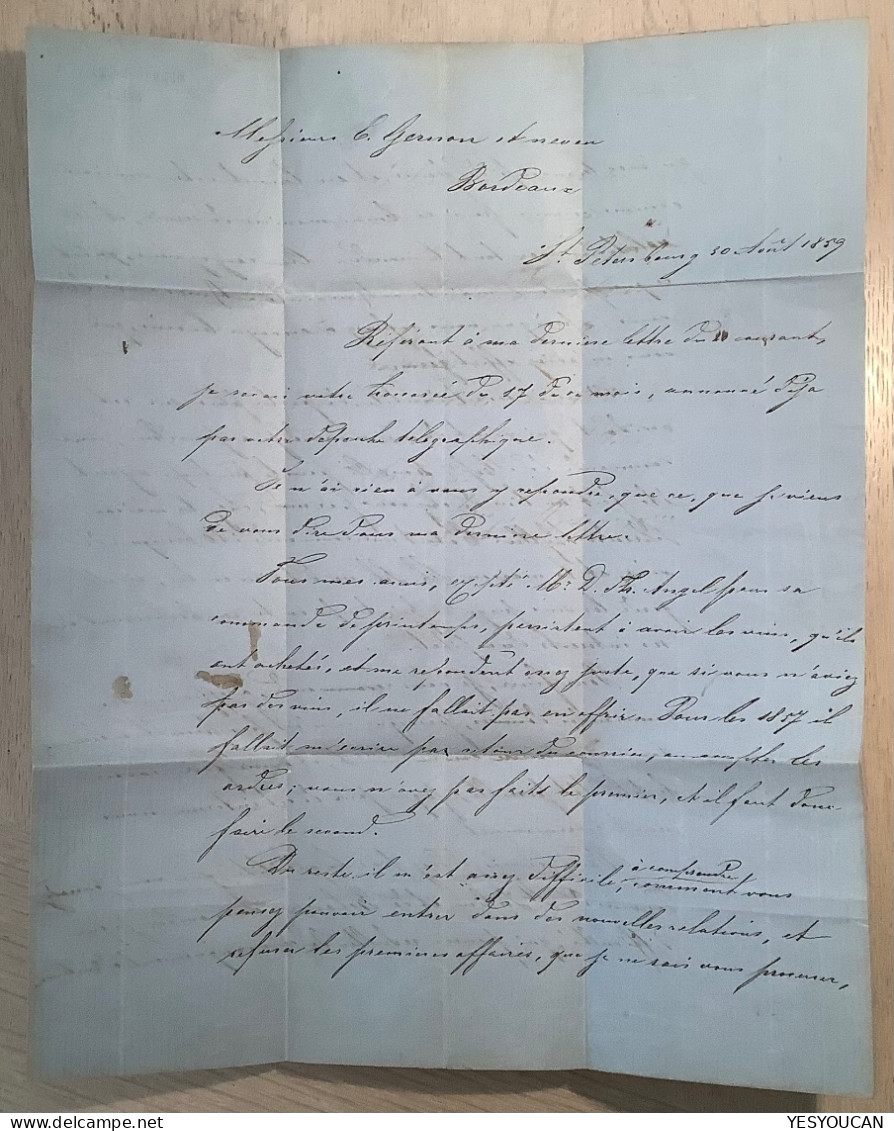 Messieurs C. Gerson et neveu
Bordeaux
St. Petersbourg 30 Août 1859
Référant à ma derniere lettre du courant,
je votre du 17 de ce mois, annoncé déja
par votre depeche télégraphique.
Je n'ai rien à vous y repondre, que ce, que je viens
de vous dire dans ma derniere lettre.
Tous mes amis, excepté Mr. D. Th. Angel pour sa
commande de printemps, persistent à avoir les vins, qu'ils
ont achetés, et me repondent assez juste, que si vous n'aviez
pas des vins, il ne fallait pas en offrir. Pour les 1857 il
fallait m'ecrire par retour du courrier, ou accepter les
ordres; vous n'avez pas faits le premier, et il faut donc
faire le second.
Du reste il m'est assez difficile, à comprendre comment vous
pensez pouvoir entrer dans des nouvelles relations, et
refuser les premieres affaires, que je ne sais vous procurer,
YESYOUCAN